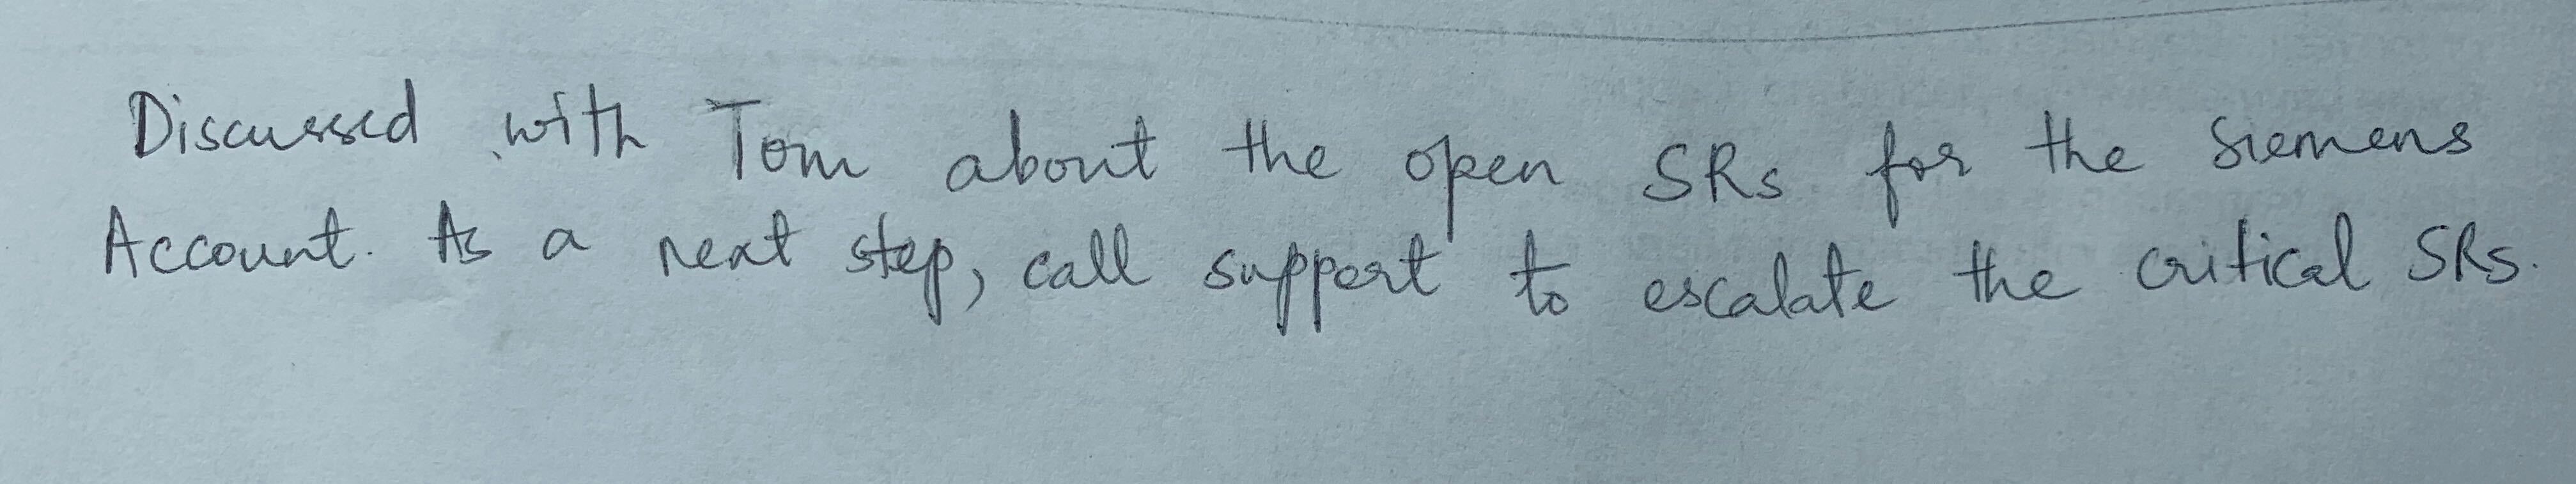 Discussed with Tom about the open SRs for the Siemens
Account. As a next step, call support to escalate the critical SRs.